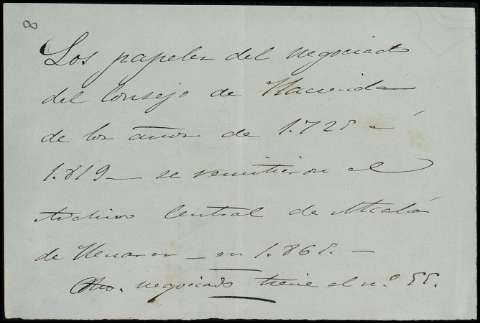 8
Los papeles del negociado
del Consejo de Hacienda
de los años de 1.725 á
1.819 — se remitieron al
Archivo Central de Alcalá
de Henares — en 1.865. —
Dho. negociado tiene el n.º 55.